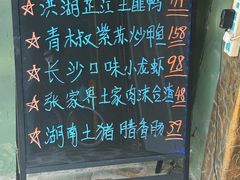 ☆洪湖芷江土匪鸭
☆青椒紫苏炒鸭158
☆长沙口味小龙虾98
☆张家界土家肉沫合渣48
☆湖南土猪腊香肠59